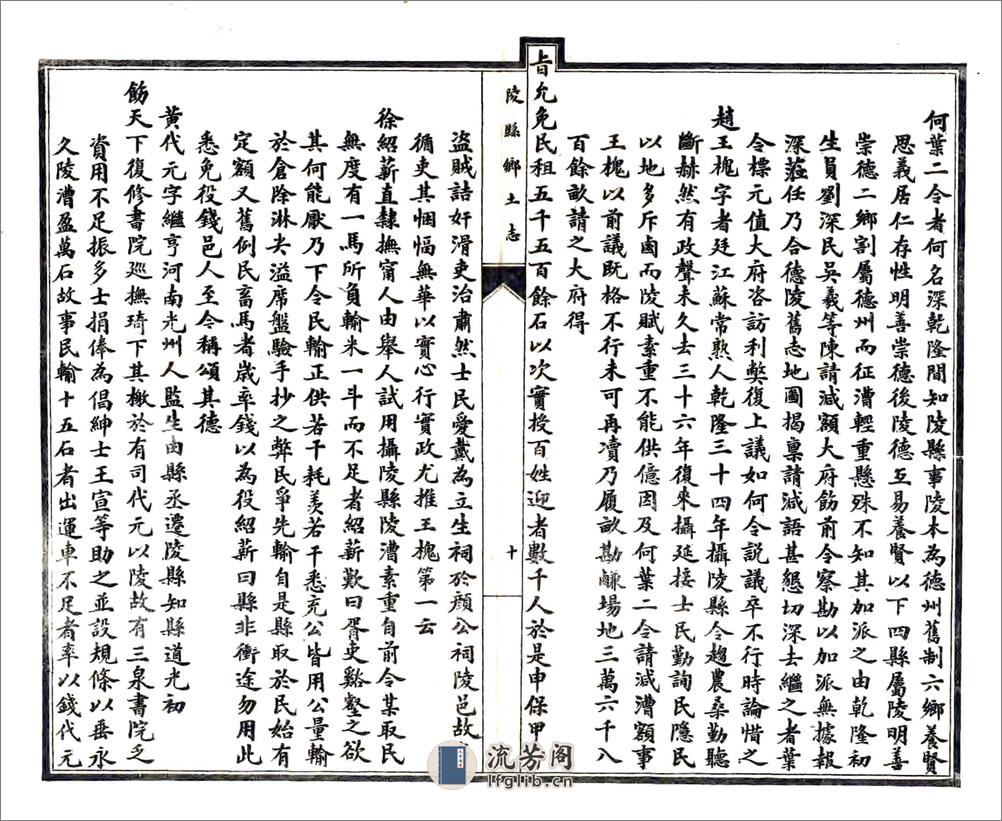 何葉二令者何名深乾隆間知陵縣事陵本為德州舊制六鄉養賢
思義居仁存性明善崇德後陵德互易養賢以下四縣屬陵明善
崇德二鄉割屬德州而征漕輕重懸殊不知其加派之由乾隆初
生員劉深民吳羲等陳請減額大府飭前令察勘以加派無據報
深蒞任乃合德陵舊志地圖揭稟請減語甚懇切深去繼之者葉
令標元值大府咨訪利獘復上議如何令説議卒不行時論惜之
趙王槐字者廷江蘇常熟人乾隆三十四年攝陵縣令趨農桑勤聽
斷赫然有政聲未久去三十六年復來攝延接士民勤詢民隱民
以地多斥鹵而陵賦素重不能供億因及何葉二令請減漕額事
王槐以前議既格不行未可再凟乃履畝勘鹻場地三萬六千八
百餘畝請之大府得
旨允免民租五千五百餘石以次實授百姓迎者數千人於是申保甲
陵縣鄉土志
十
盜賊詰奸滑吏治肅然士民愛戴為立生祠於顔公祠陵邑故
循吏其悃愊無華以實心行實政尤推王槐第一云
徐紹薪直隸撫甯人由舉人試用攝陵縣陵漕素重自前令某取民
無度有一馬所負輸米一斗而不足者紹薪歎曰胥吏谿壑之欲
其何能厭乃下令民輸正供若干耗羡若干悉充公皆用公量輸
於倉除淋尖溢席盤驗手抄之弊民爭先輸自是縣取於民始有
定額又舊例民畜馬者歲率錢以為役紹薪曰縣非衝途勿用此
悉免役錢邑人至今稱頌其德
黃代元字繼亨河南光州人監生由縣丞遷陵縣知縣道光初
飭天下復修書院巡撫琦下其檄於有司代元以陵故有三泉書院乏
資用不足振多士捐俸為倡紳士王宣等助之並設規條以垂永
久陵漕盈萬石故事民輸十五石者出運車不足者率以錢代元
流芳阁
lfglib.cn